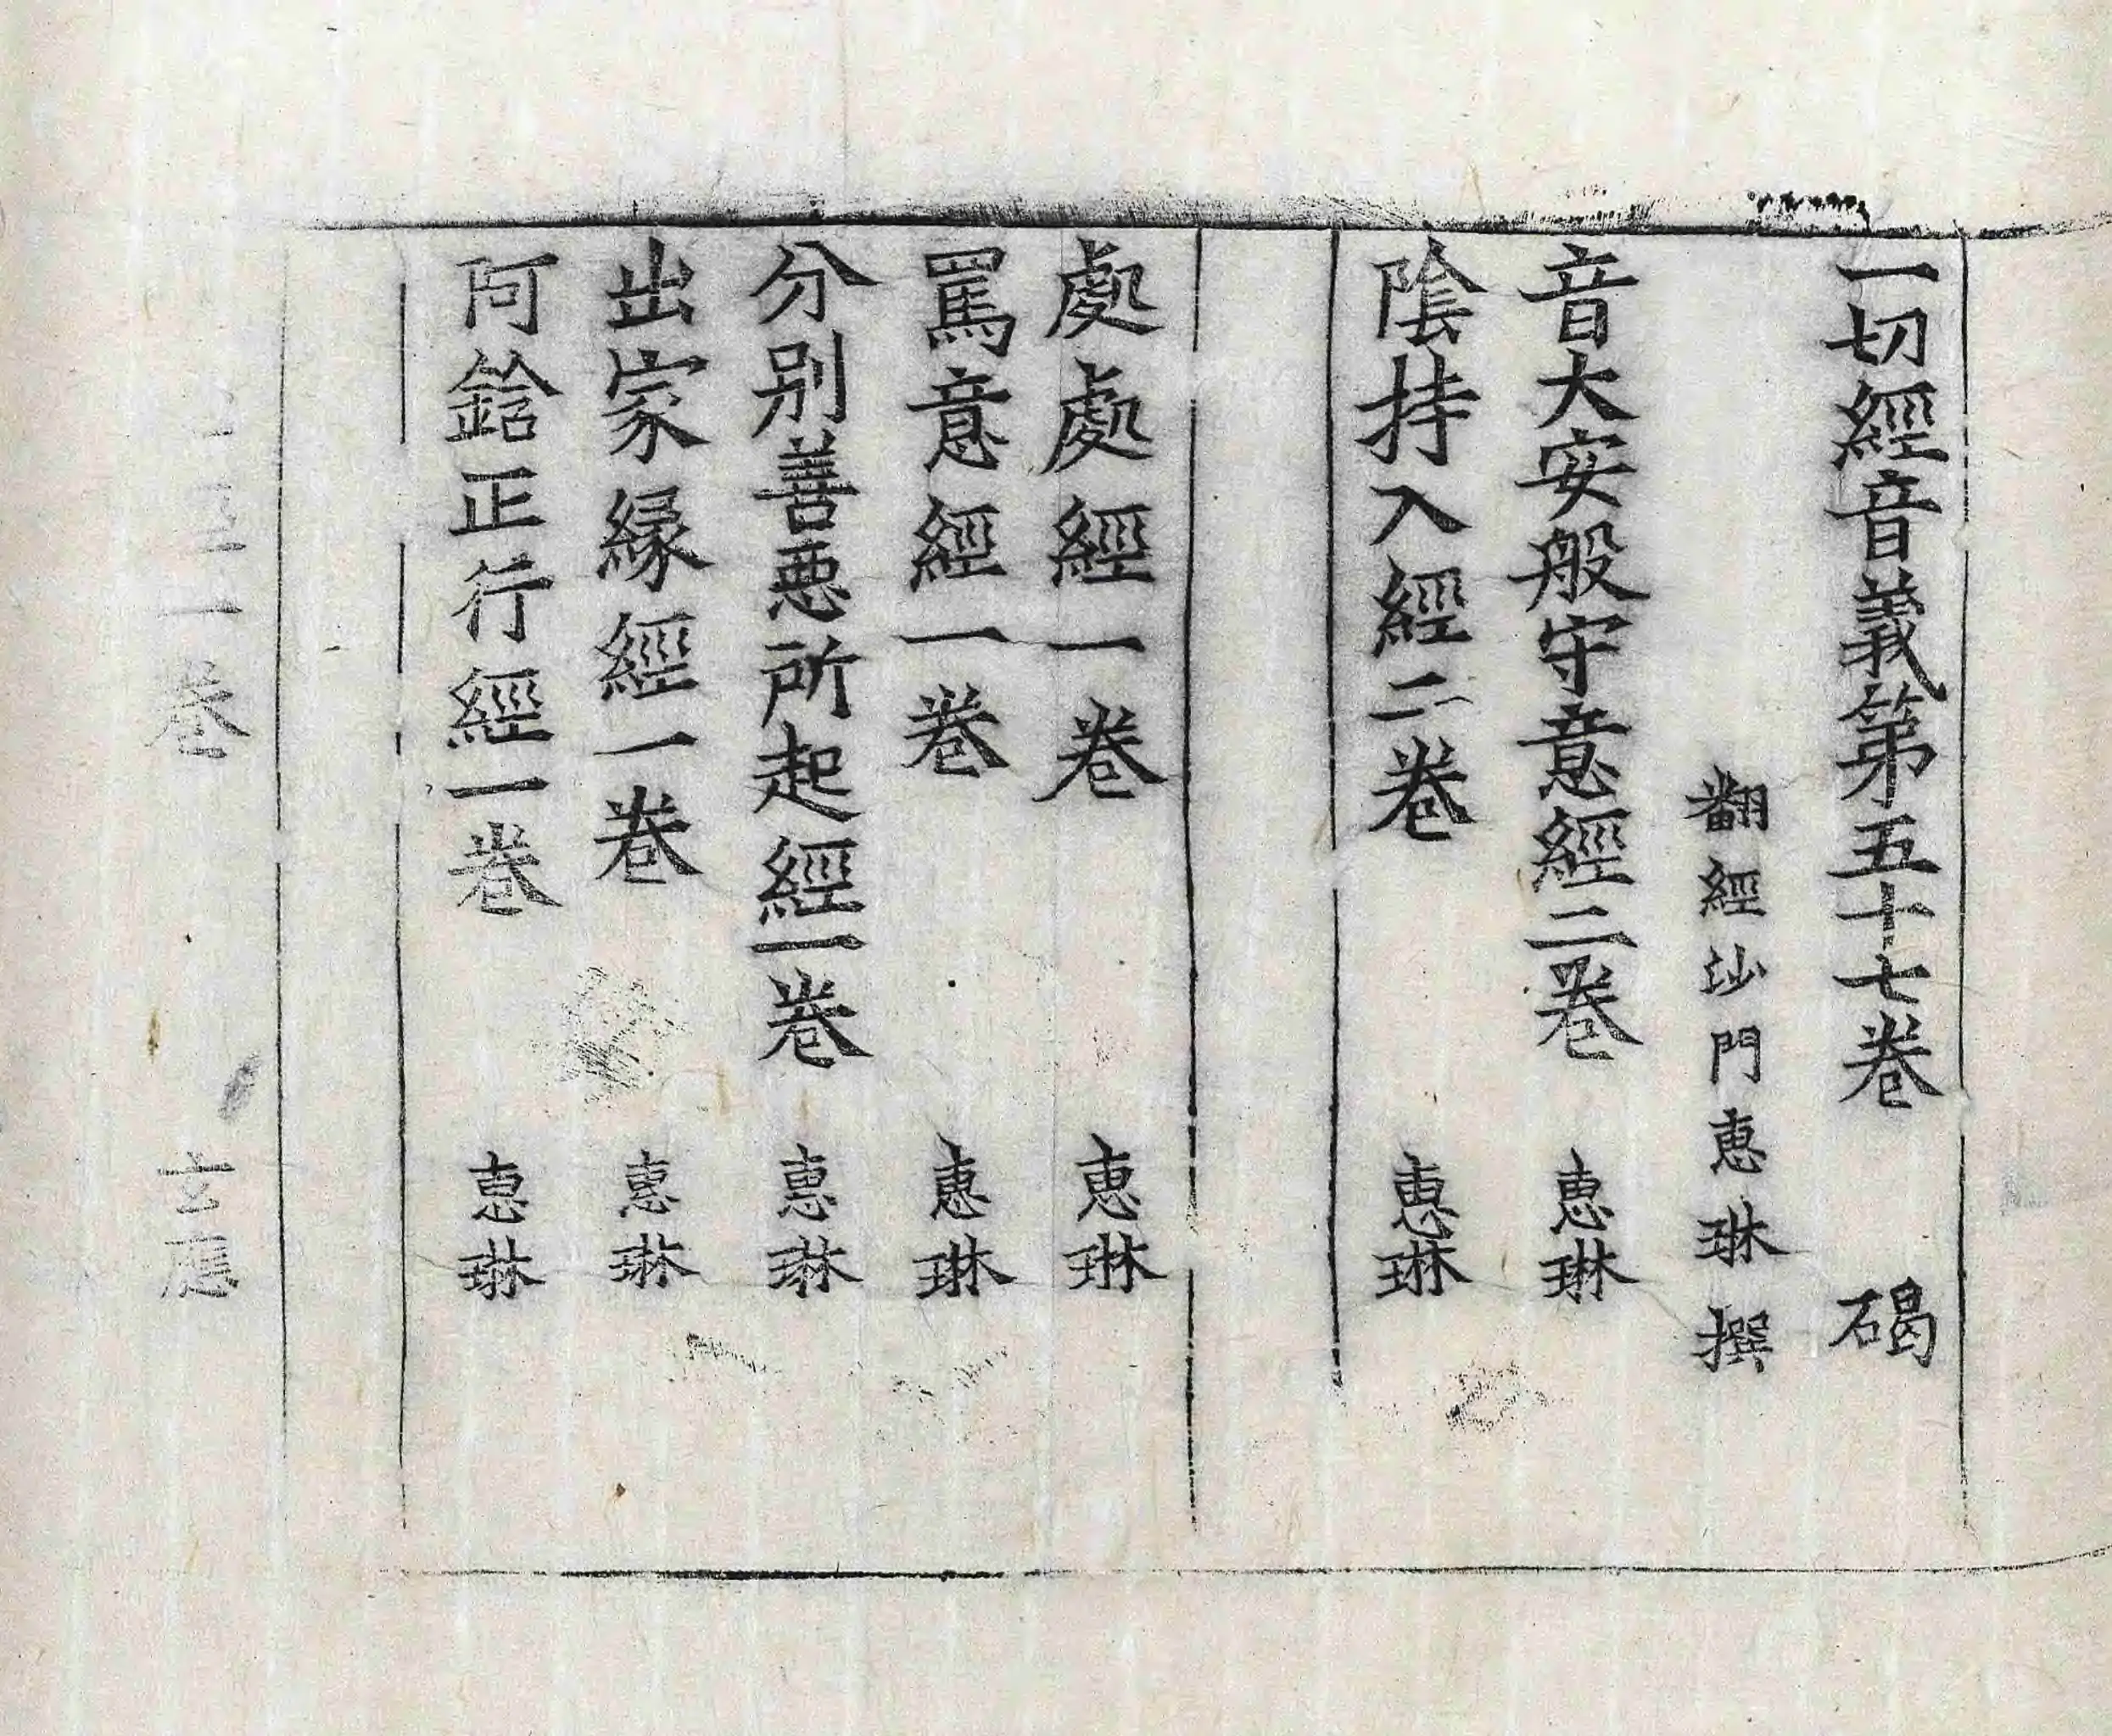 一切經音義第五十七卷　碣
翻經沙門惠琳撰
音大安般守意經二卷　惠琳
陰持入經二卷　惠琳
處處經一卷　惠琳
罵意經一卷　惠琳
分别善惡所起經一卷　惠琳
出家縁經一卷　惠琳
阿鋡正行經一卷　惠琳
一卷　玄應